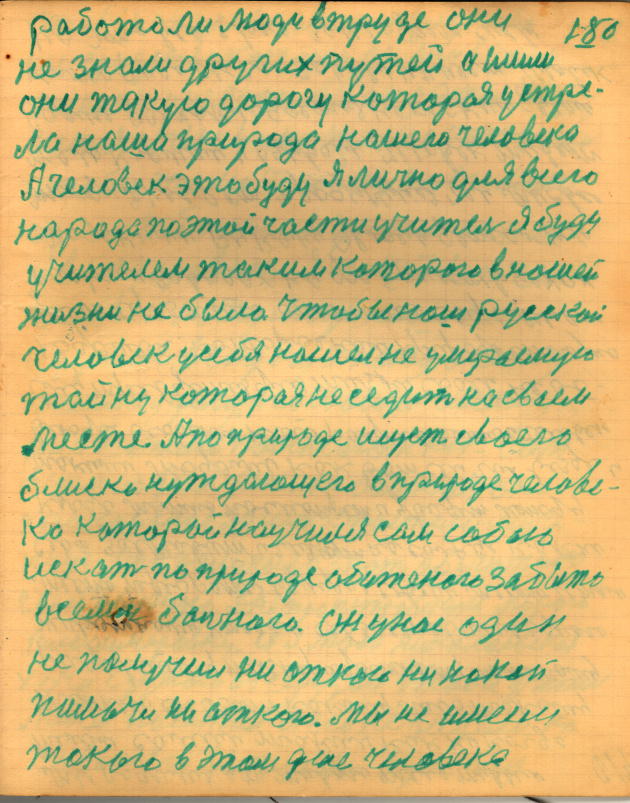 180
работали люди в труде они
не знали других путей а шли
они такую дорогу которая устре-
ла наша природа нашего человека
А человек это буду Я лично для всего
народа по этой части учител Я буду
учителем таким которого в нашей
жизни не было чтобы наш русской
человек у себя нашел не умераемую
тайну которая не седит на своем
месте. А по природе ищет своего
блиско нуждающего в природе челове-
ка которой научился сам собою
искат по природе обиженого забыто
всеми больного. он у нас один
не получил ни от кого ни какой
помочи ни от кого. мы не имеем
такого в этом деле человека